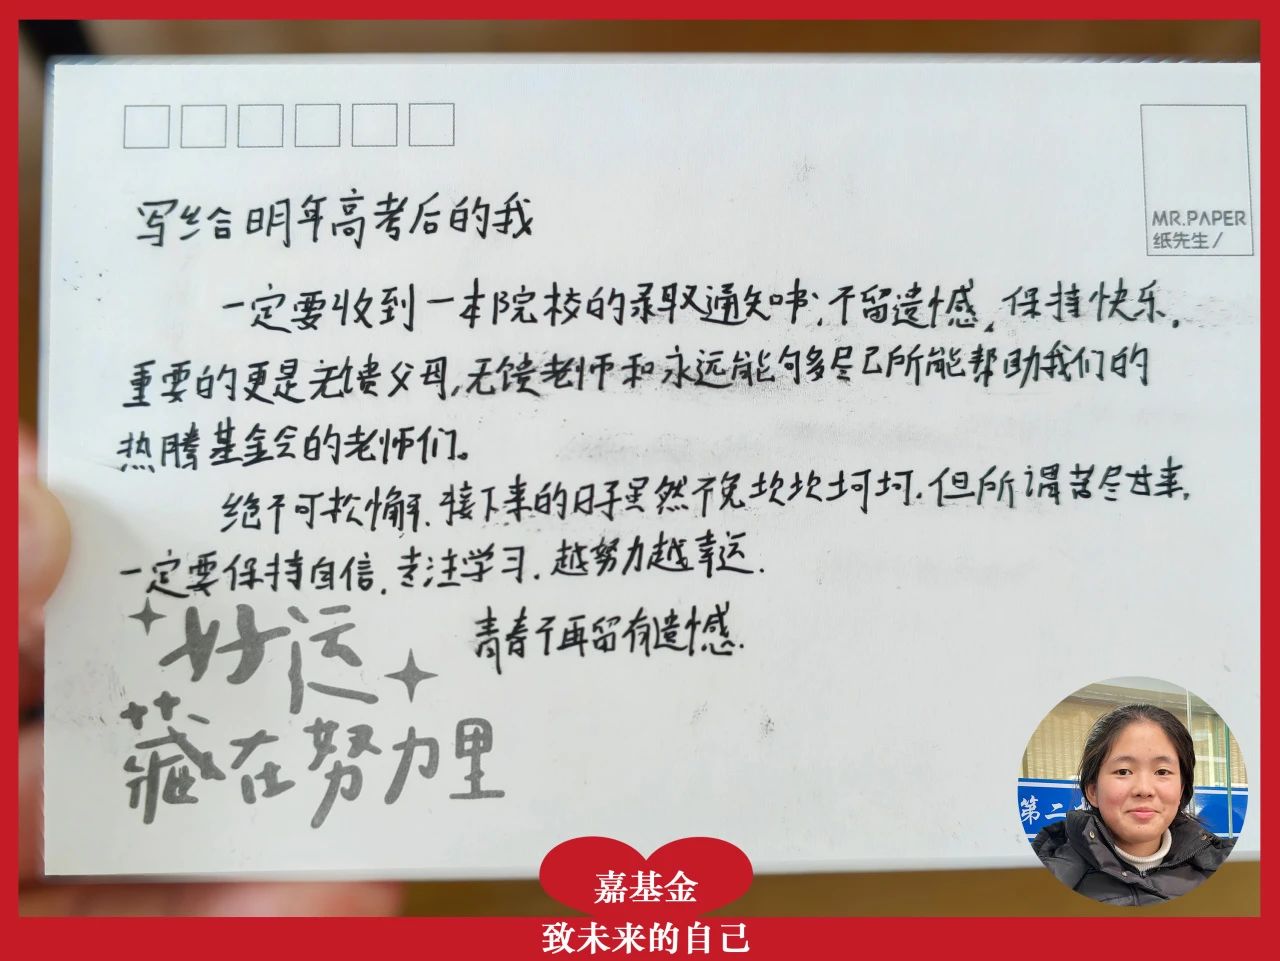 MR.PAPER
纸先生/
写给明年高考后的我
一定要收到一本院校的录取通知书,不留遗憾,保持快乐,
重要的更是无愧父母,无愧老师和永远能够尽己所能帮助我们的
热腾基金会的老师们。
绝不可松懈,接下来的日子虽然不免坎坎坷坷,但所谓苦尽甘来,
一定要保持自信,专注学习,越努力越幸运.
青春不再留有遗憾.
好运
藏在努力里
第二
嘉基金
致未来的自己